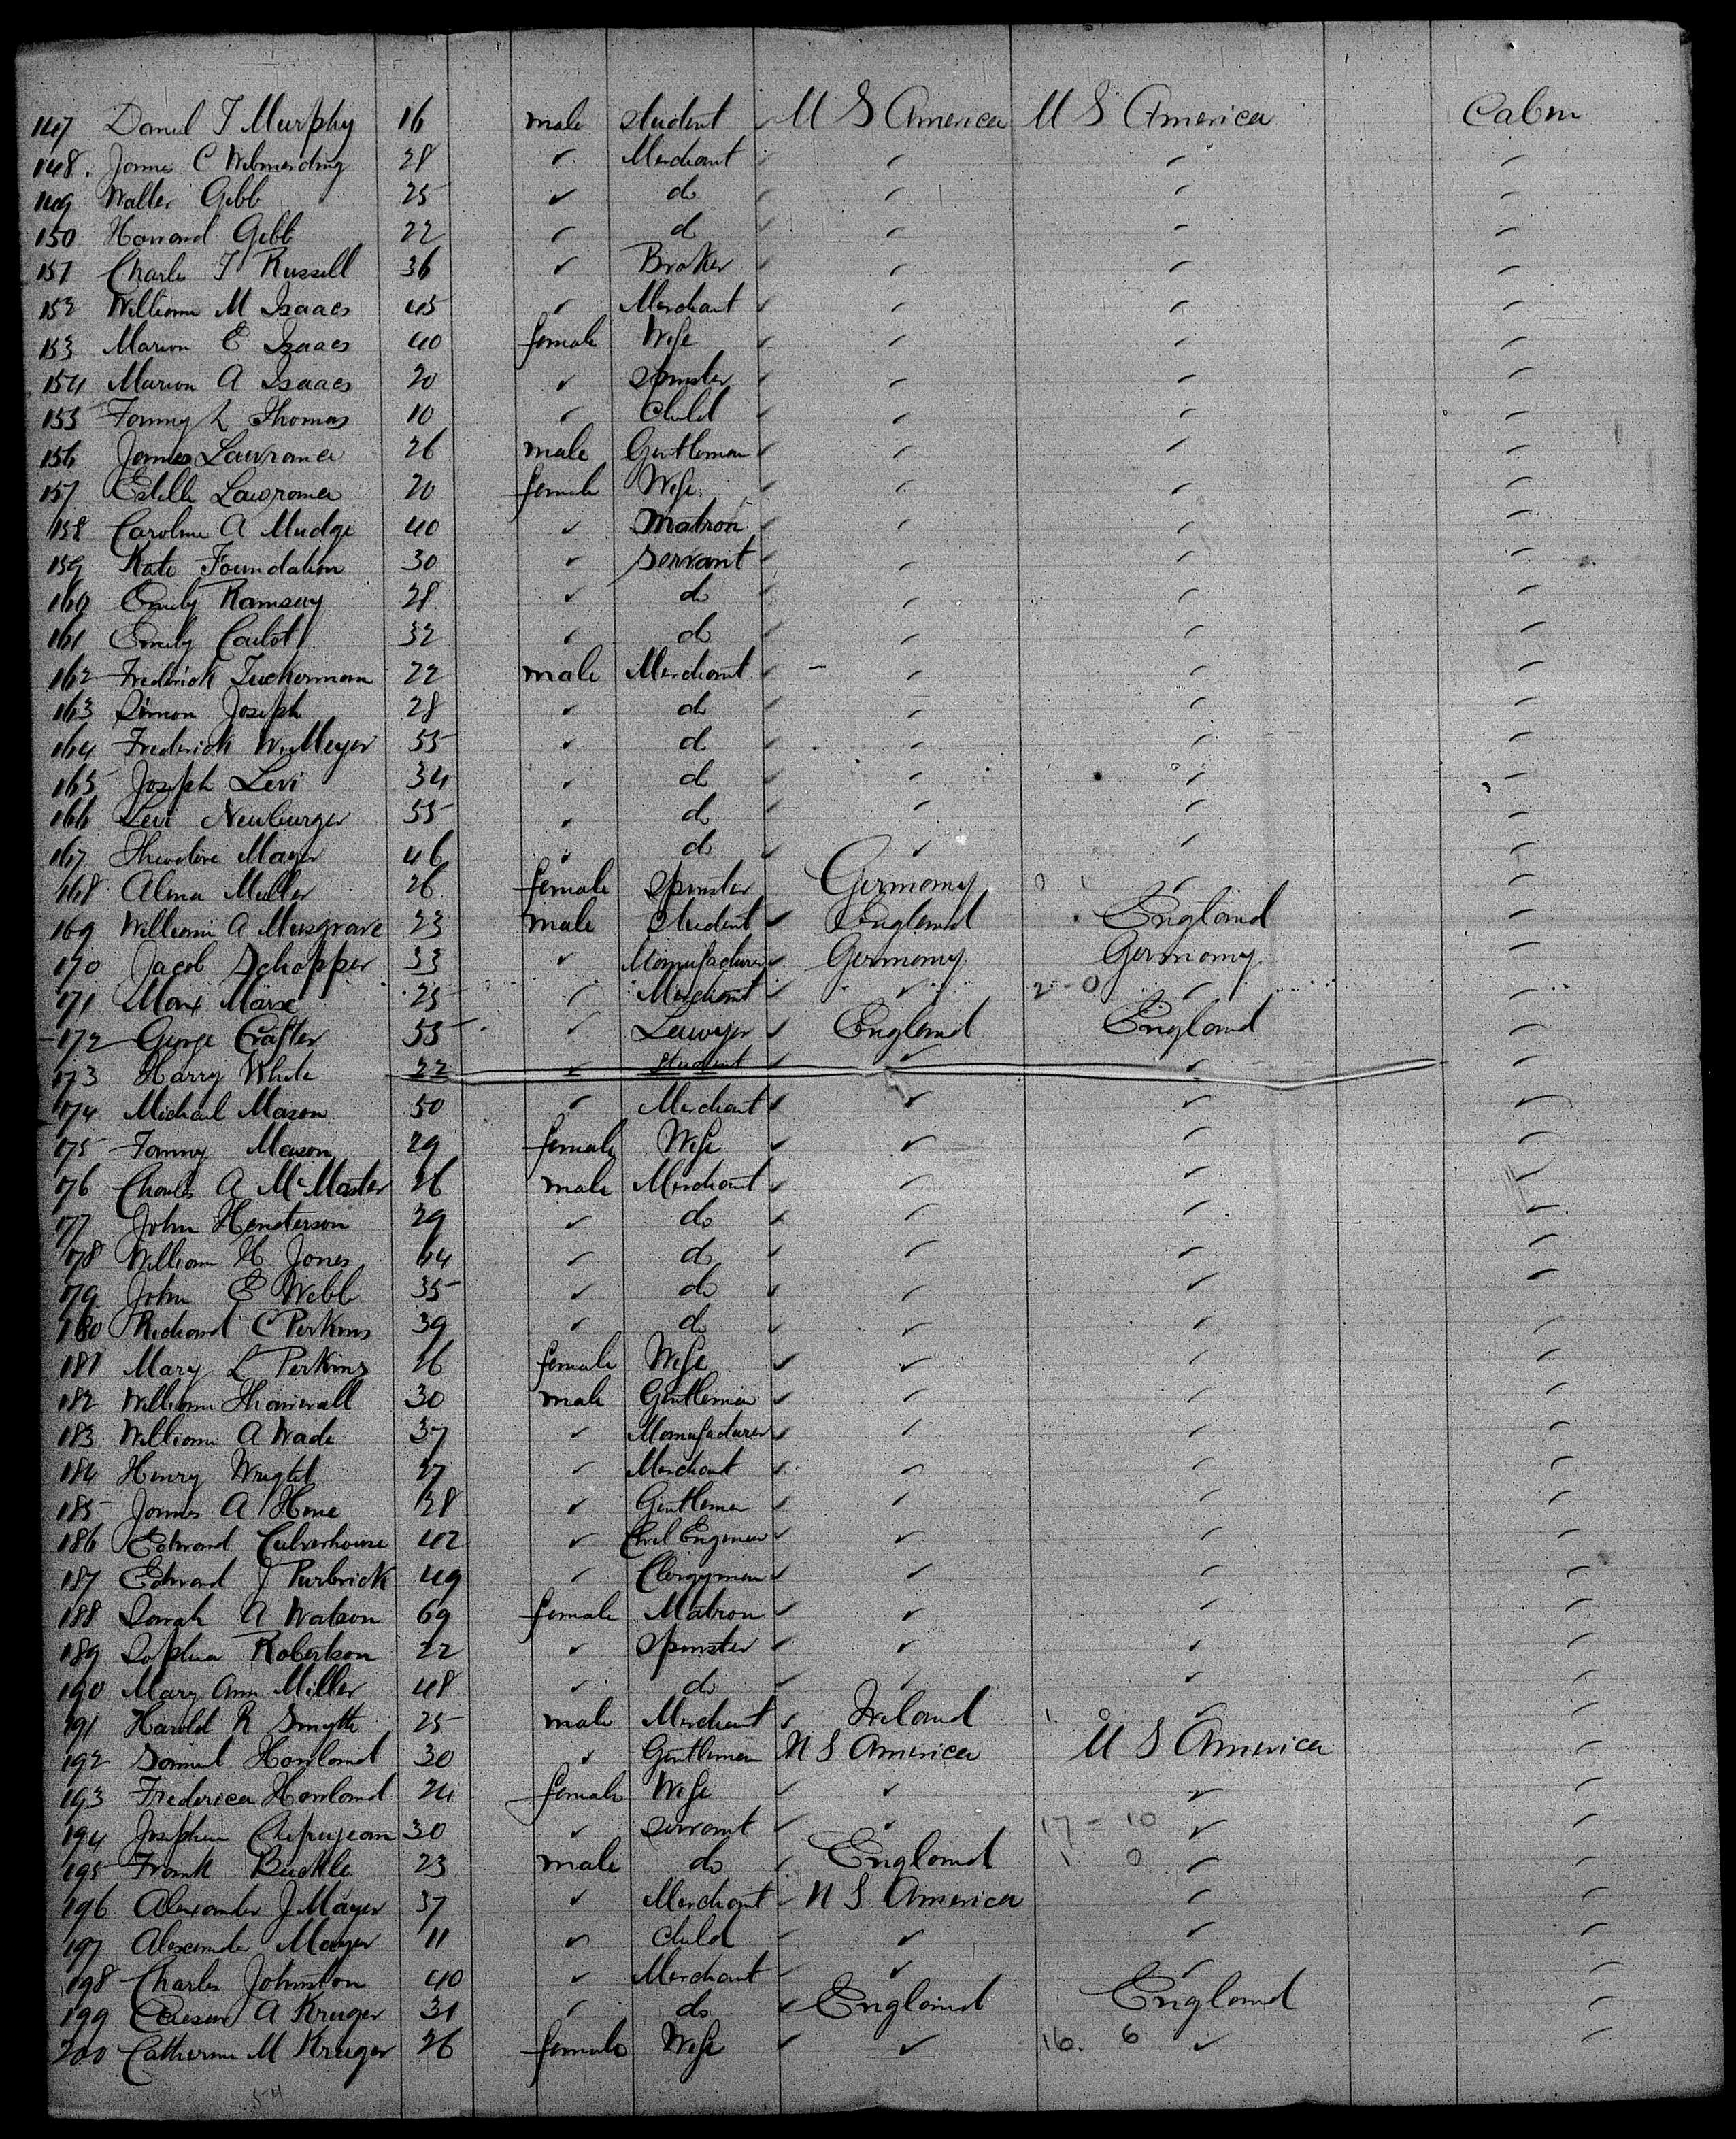 147 Daniel T Murphy 16 male student U S America U S America Cabin
148. James C Wilmerding 28 ✓ Merchant ✓ ✓ ✓
149 Walter Gibb 25 ✓ do ✓ ✓ ✓
150 Howard Gibb 22 ✓ do ✓ ✓ ✓
151 Charles T Russell 36 ✓ Broker ✓ ✓ ✓
152 William M Isaacs 45 ✓ Merchant ✓ ✓ ✓
153 Marion E Isaacs 40 female Wife ✓ ✓ ✓
154 Marion A Isaacs 20 ✓ Spinster ✓ ✓ ✓
155 Fanny L Thomas 10 ✓ Child ✓ ✓ ✓
156 James Lawrance 26 male Gentleman ✓ ✓ ✓
157 Estelle Lawrance 20 female Wife ✓ ✓ ✓
158 Caroline A Mudge 40 ✓ Matron ✓ ✓ ✓
159 Kate Foundation 30 ✓ Servant ✓ ✓ ✓
160 Emily Ramsay 28 ✓ do ✓ ✓ ✓
161 Emily 32 ✓ do ✓ ✓ ✓
162 Frederick Tuckerman 22 male Merchant ✓ ✓ ✓
163 Simon Joseph 28 ✓ do ✓ ✓ ✓
164 Frederick W Meyer 55 ✓ do ✓ ✓ ✓
165 Joseph Levi 34 ✓ do ✓ ✓ ✓
166 Levi Neuburger 55 ✓ do ✓ ✓ ✓
167 Theodore Mayer 46 ✓ do ✓ ✓ ✓
168 Alma Muller 26 female Spinster Germany 0 1 ✓ ✓
169 William A Musgrave 23 male Student England England ✓
170 Jacob Schopper 33 ✓ Manufacturer Germany Germany ✓
171 Max Marse 25 ✓ Merchant ✓ 2 - 0 ✓ ✓
172 George Crafter 55 ✓ Lawyer England England ✓
173 Harry White 22 ✓ Student ✓ ✓ ✓
174 Michael Mason 50 ✓ Merchant ✓ ✓ ✓
175 Fanny Mason 29 female Wife ✓ ✓ ✓
176 Charles A McMaster 26 male Merchant ✓ ✓ ✓
177 John Henderson 29 ✓ do ✓ ✓ ✓
178 William H Jones 44 ✓ do ✓ ✓ ✓
179 John E Webb 35 ✓ do ✓ ✓ ✓
180 Richard C Perkins 39 ✓ do ✓ ✓ ✓
181 Mary L Perkins 26 female Wife ✓ ✓ ✓
182 William 30 male Gentleman ✓ ✓ ✓
183 William A Wade 37 ✓ Manufacturer ✓ ✓ ✓
184 Henry Wright 27 ✓ Merchant ✓ ✓ ✓
185 James A Hone 38 ✓ Gentleman ✓ ✓ ✓
186 Edward Culverhouse 42 ✓ Civil Engineer ✓ ✓ ✓
187 Edward J Purbrick 49 ✓ Clergyman ✓ ✓ ✓
188 Sarah A Watson 69 female Matron ✓ ✓ ✓
189 Sophia Robertson 22 ✓ Spinster ✓ ✓ ✓
190 Mary Ann Miller 48 ✓ do ✓ ✓ ✓
191 Harold R Smyth 25 male Merchant Ireland 1 0 ✓ ✓
192 Samuel Howland 30 ✓ Gentleman U S America U S America ✓
193 Frederica Howland 24 female Wife ✓ ✓ ✓
194 Josephine 30 ✓ Servant ✓ 17 - 10 ✓ ✓
195 Frank Buckle 23 male do England 1 0 ✓ ✓
196 Alexander J Mayer 37 ✓ Merchant U S America ✓ ✓
197 Alexander Mayer 11 ✓ Child ✓ ✓ ✓
198 Charles Johnston 40 ✓ Merchant ✓ ✓ ✓
199 A Kruger 31 ✓ do England England ✓
200 Catherine M Kruger 26 female Wife ✓ 16. 6 ✓ ✓
54